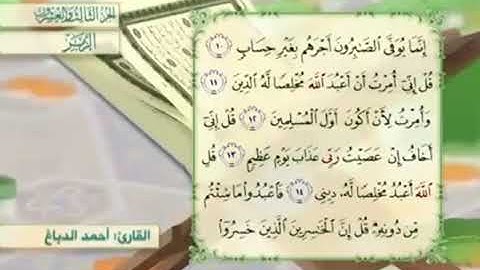 الجزء الثالث والعشرون
الزمر
إِنَّمَا يُوَفَّى الصَّٰبِرُونَ أَجْرَهُم بِغَيْرِ حِسَابٍ ١٠
قُلْ إِنِّىٓ أُمِرْتُ أَنْ أَعْبُدَ اللَّهَ مُخْلِصًا لَّهُ الدِّينَ ١١
وَأُمِرْتُ لِأَنْ أَكُونَ أَوَّلَ الْمُسْلِمِينَ ١٢ قُلْ إِنِّىٓ
أَخَافُ إِنْ عَصَيْتُ رَبِّى عَذَابَ يَوْمٍ عَظِيمٍ ١٣ قُلِ
اللَّهَ أَعْبُدُ مُخْلِصًا لَّهُۥ دِينِى ١٤ فَاعْبُدُوا۟ مَا شِئْتُم
مِّن دُونِهِۦ قُلْ إِنَّ الْخَٰسِرِينَ الَّذِينَ خَسِرُوٓا۟
القارئ: أحمد الدباغ